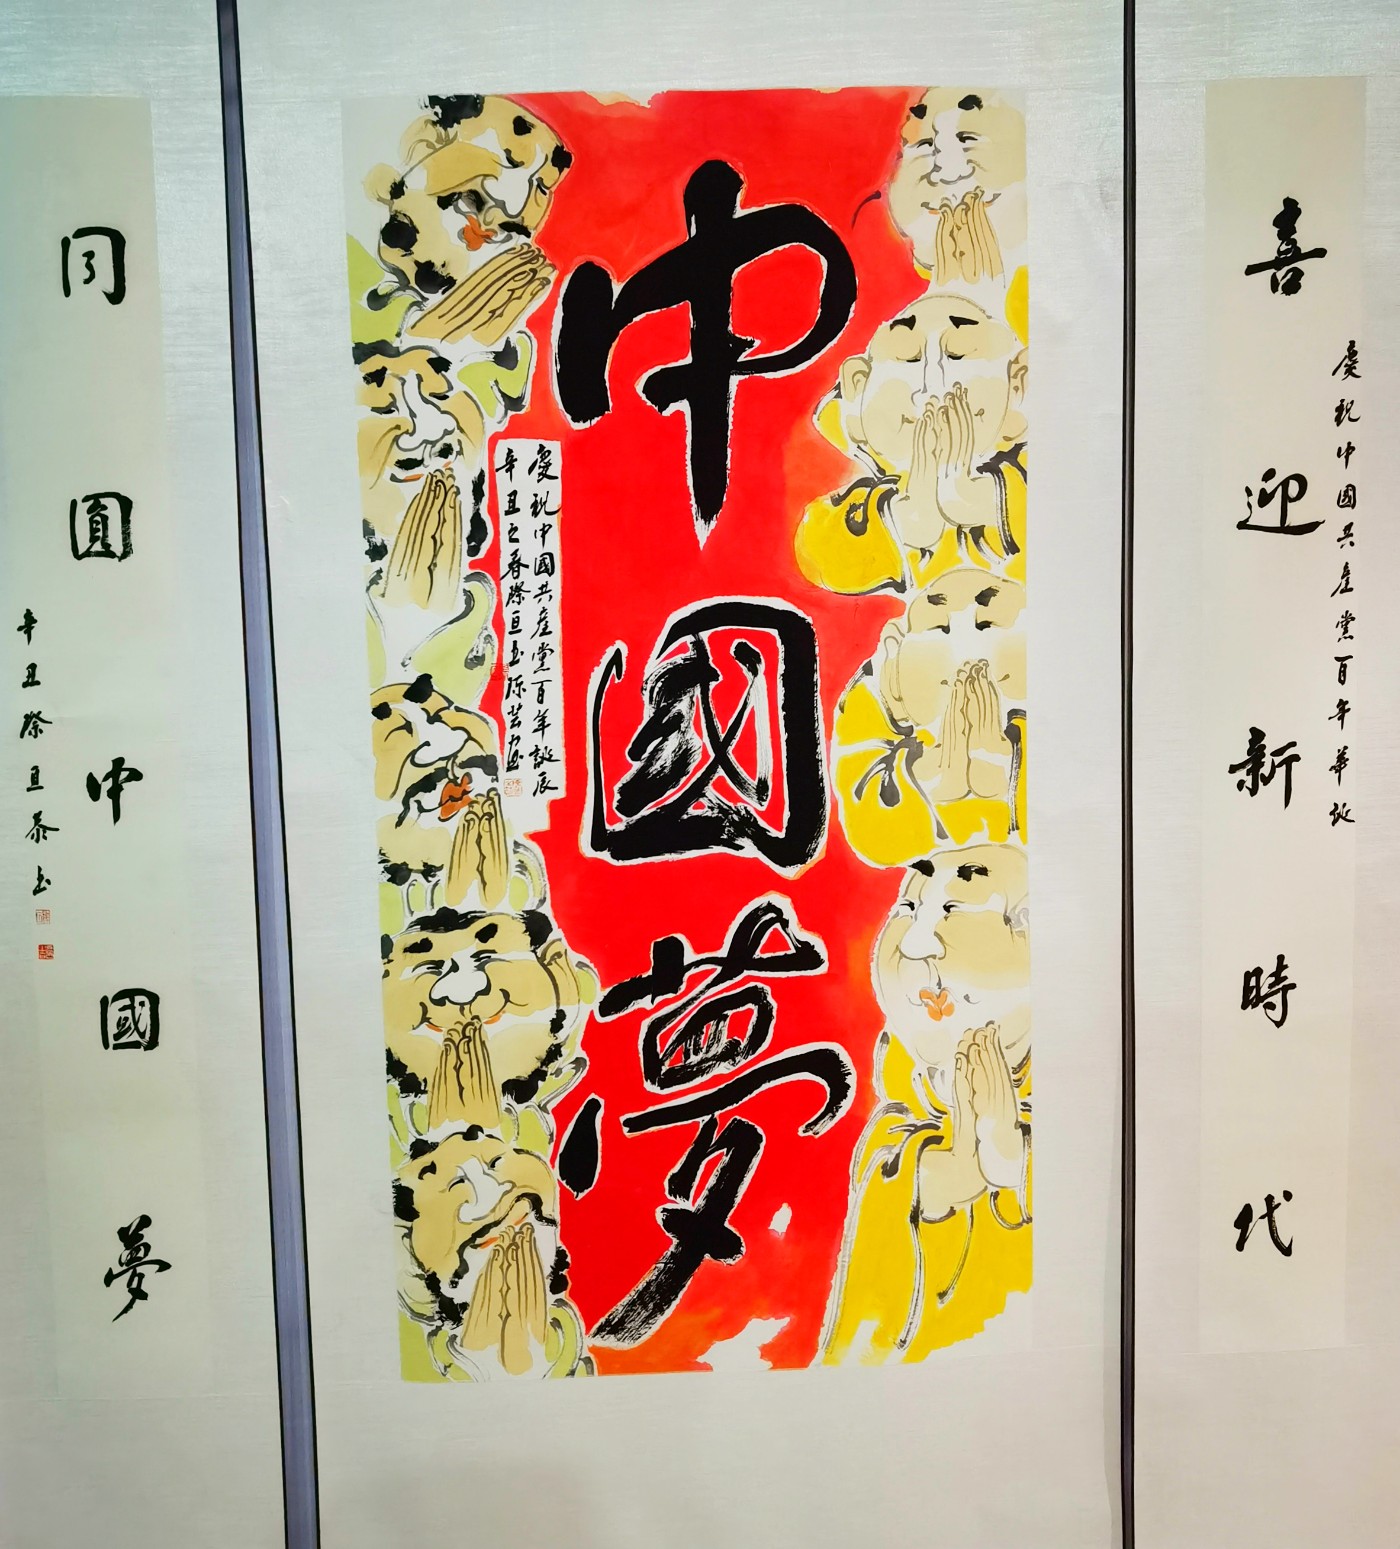 慶祝中國共產黨百年華誕
喜迎新時代
中國夢
慶祝中國共產黨百年誕辰
辛丑之春
同圓中國夢
辛丑